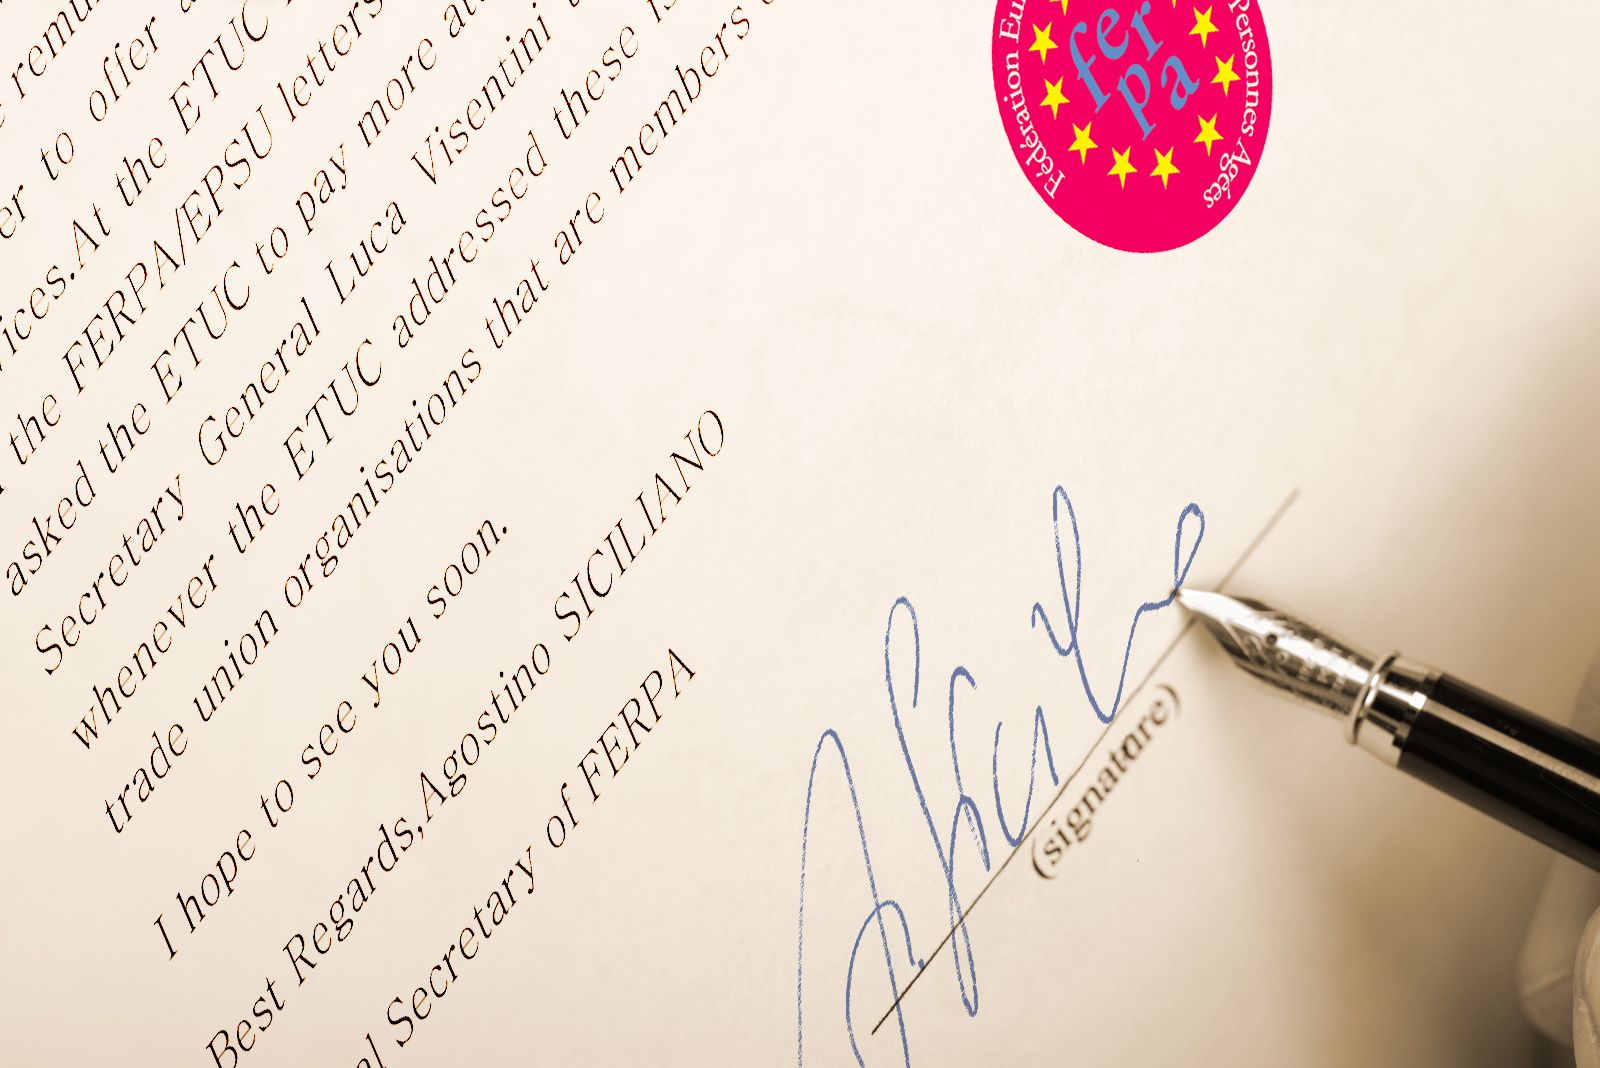 to offer
ices.At the ETUC
the FERPA/EPSU letters
asked the ETUC to pay more
Secretary General Luca Visentini
whenever the ETUC addressed these
trade union organisations that are members
I hope to see you soon.
Best Regards,Agostino SICILIANO
Secretary of FERPA
Fédération
Personnes Agées
fer
pa
(signature)